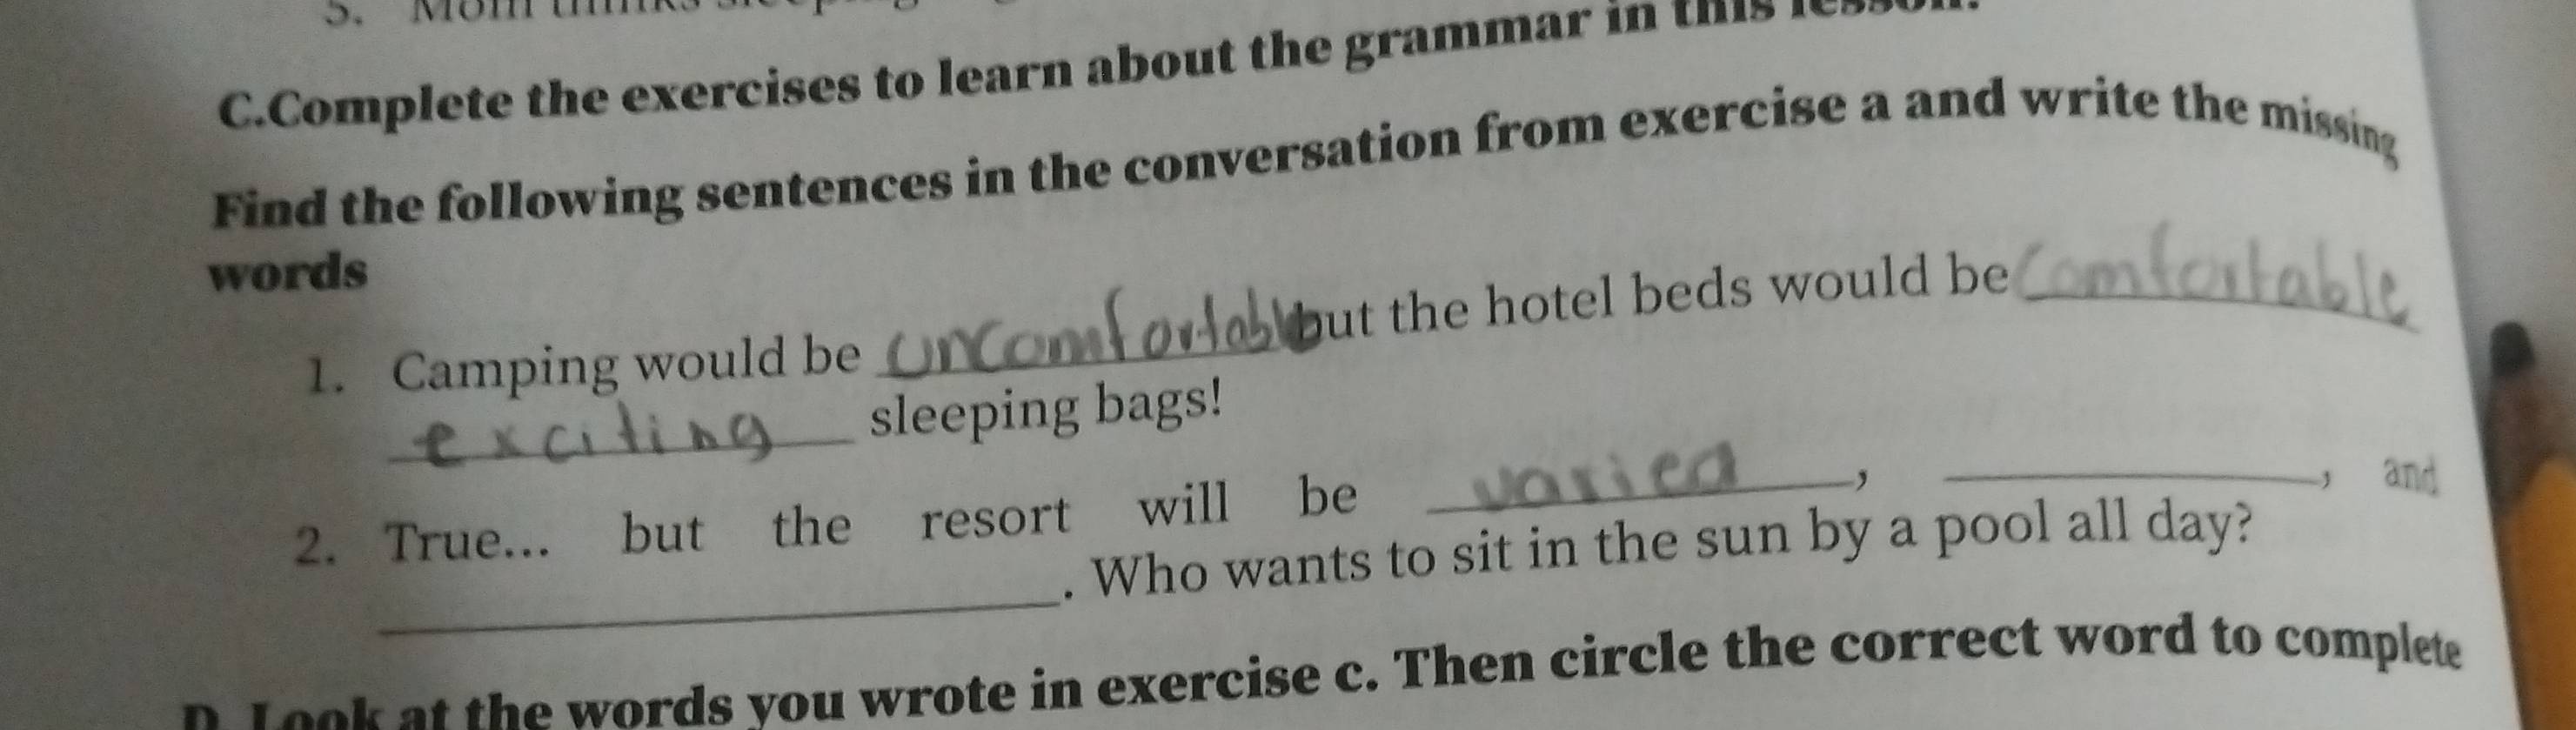 5. Mom thinks sleeping
C.Complete the exercises to learn about the grammar in this lesson.
Find the following sentences in the conversation from exercise a and write the missing
words
1. Camping would be uncomfortable but the hotel beds would be comfortable
exciting sleeping bags!
2. True... but the resort will be varied, , and
. Who wants to sit in the sun by a pool all day?
D. Look at the words you wrote in exercise c. Then circle the correct word to complete